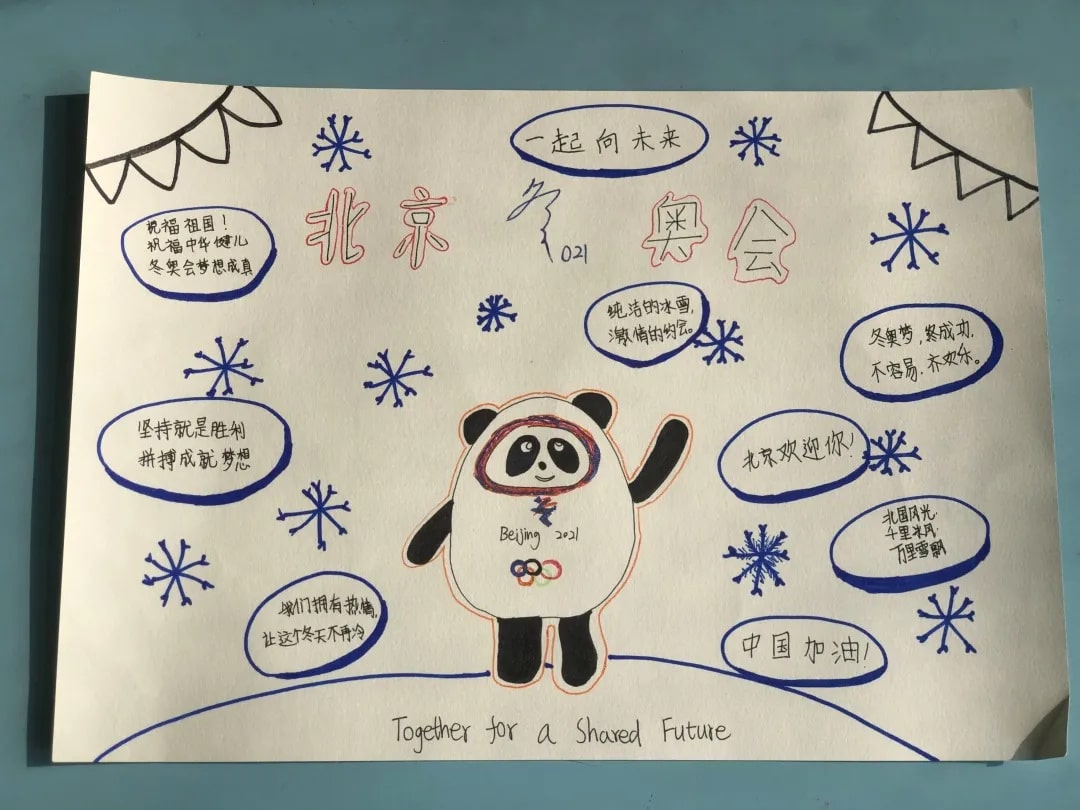 一起向未来
北京冬奥会
021
祝福祖国！
祝福中华健儿
冬奥会梦想成真
纯洁的冰雪，
激情的约会。
冬奥梦，终成功，
不容易，齐欢乐。
坚持就是胜利
拼搏成就梦想
北京欢迎你！
Beijing 2021
北国风光，
千里冰风，
万里雪飘
我们拥有热情，
让这个冬天不再冷
中国加油！
Together for a Shared Future